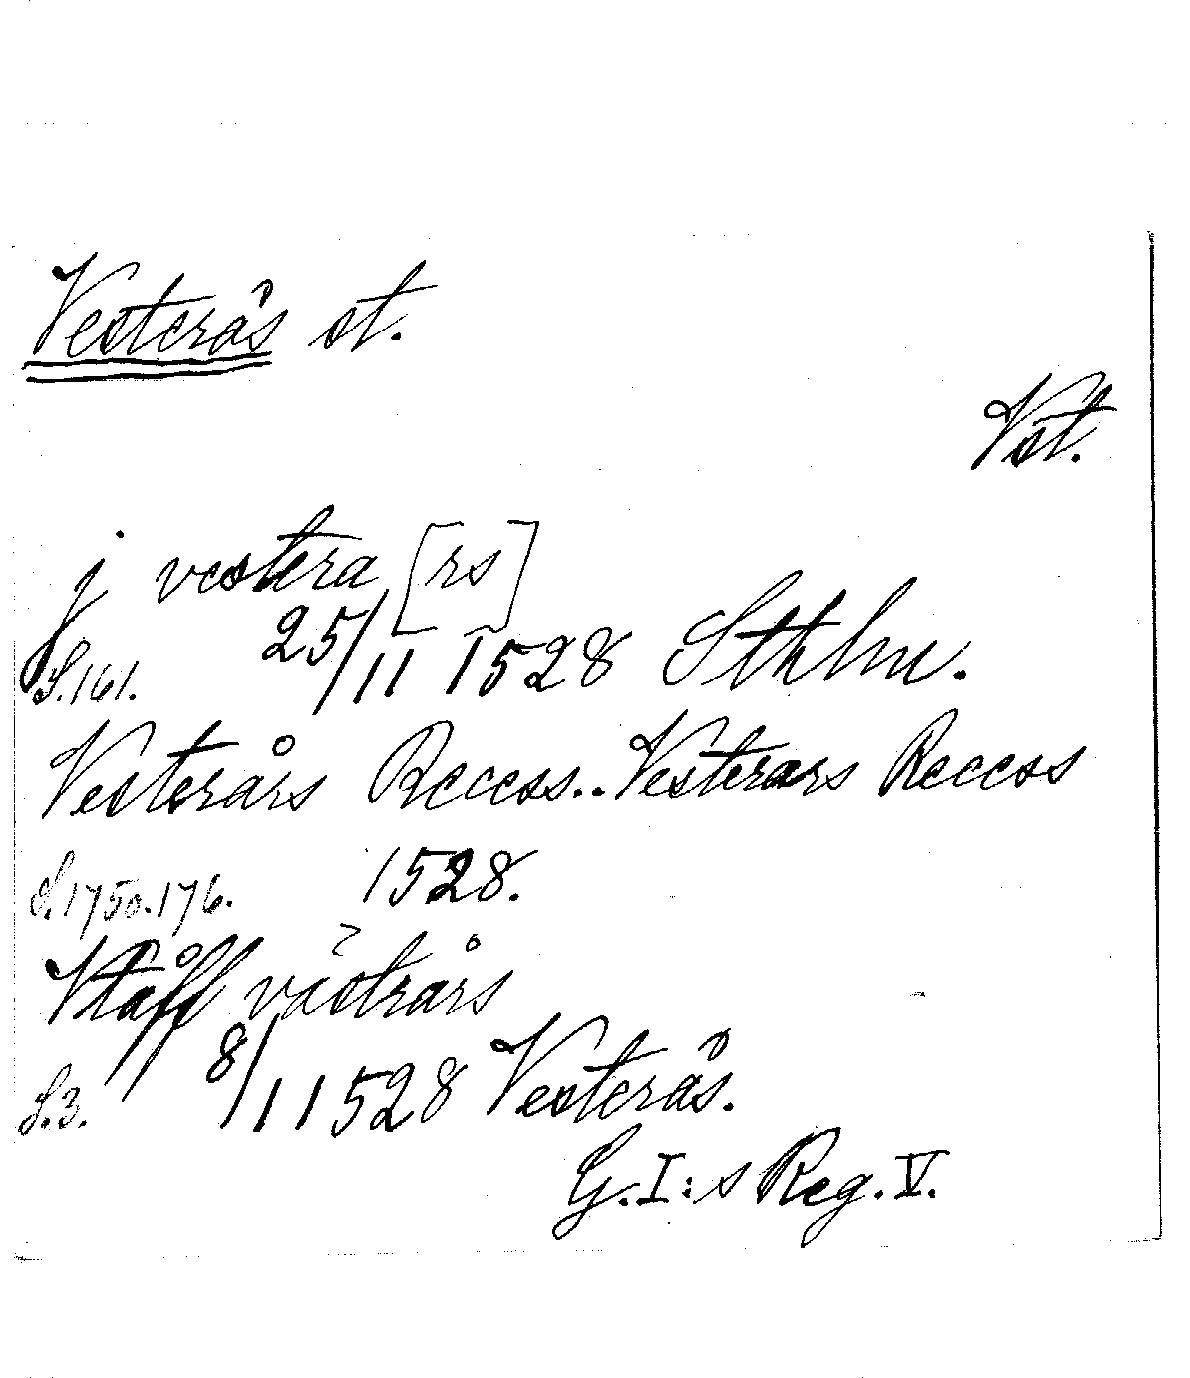 Vesterås st.
Vst.
j vestera [rs]
S.161. 25/11 1528 Sthlm.
Vesterårs Recess.. Vesterars Recess
S.175o.176. 1528.
västrårs
S.3. 8/1 1528 Vesterås.
G.I:s Reg. V.